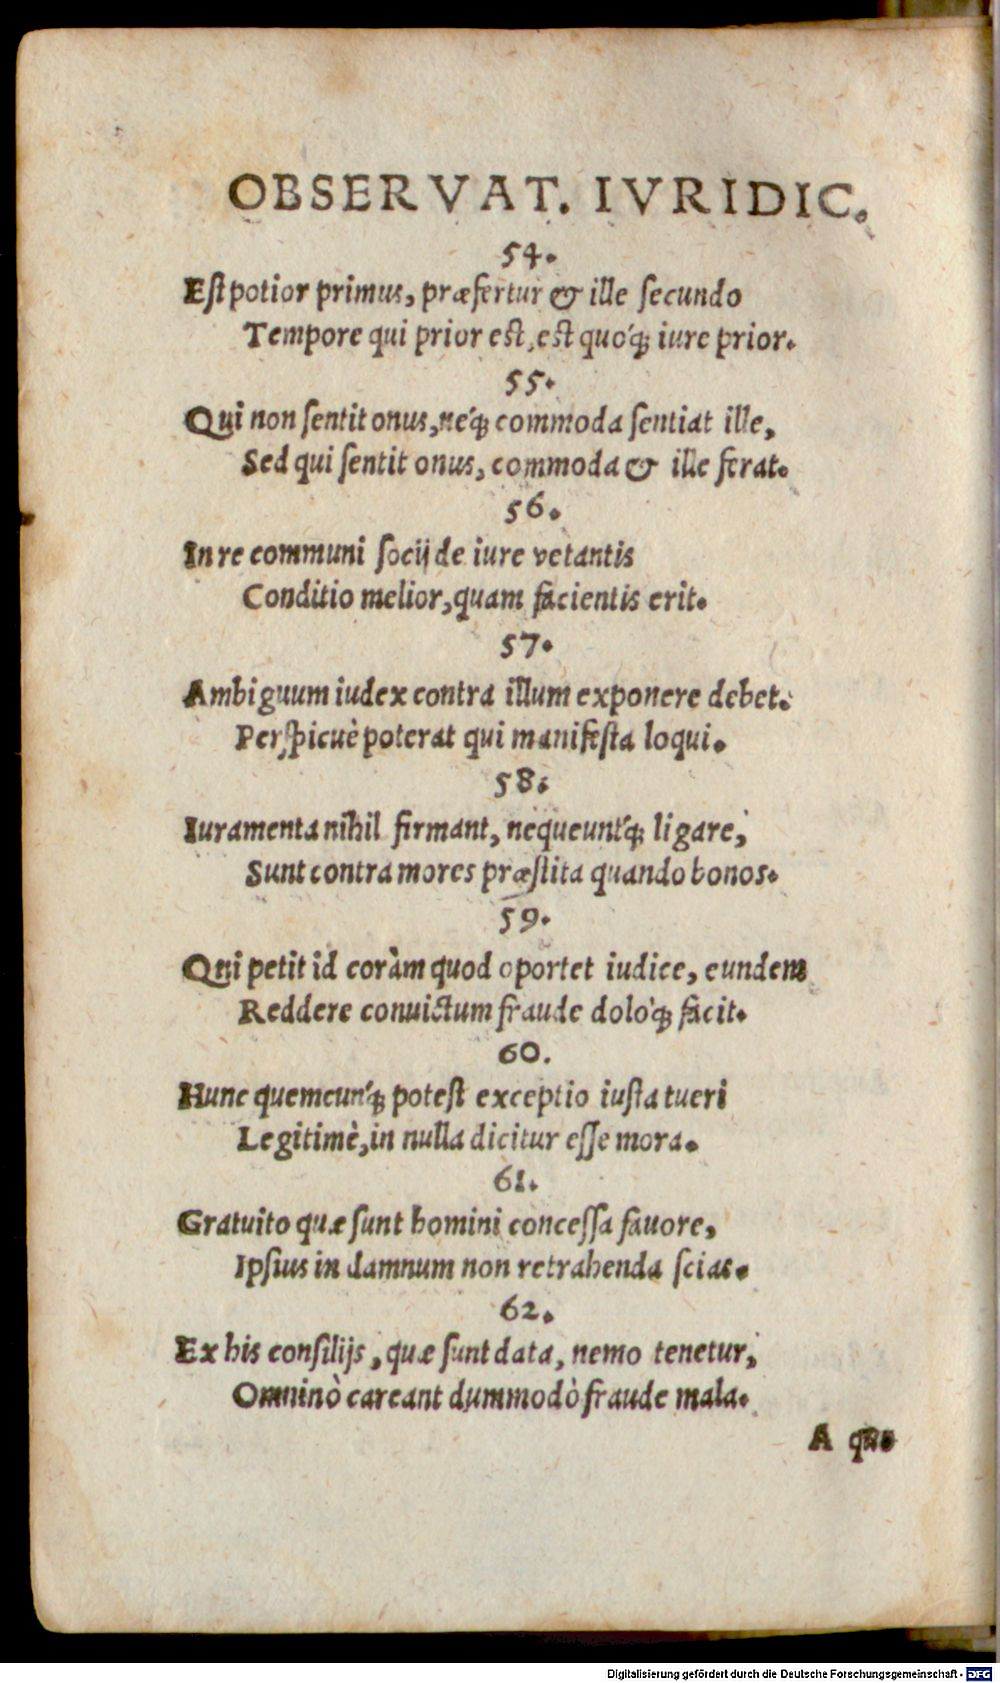 OBSERVAT. IVRIDIC.
54.
Est potior primus, præfertur & ille secundo
Tempore qui prior est, est quo'q; iure prior.
55.
Qui non sentit onus, ne'q; commoda sentiat ille,
Sed qui sentit onus, commoda & ille ferat.
56.
In re communi socij de iure vetantis
Conditio melior, quam facientis erit.
57.
Ambiguum iudex contra illum exponere debet.
Perspicuè poterat qui manifesta loqui.
58.
Iuramenta nihil firmant, nequeunt'q; ligare,
Sunt contra mores præstita quando bonos.
59.
Qui petit id coràm quod oportet iudice, eundem
Reddere conuictum fraude dolo'q; facit.
60.
Hunc quemcun'q; potest exceptio iusta tueri
Legitimè, in nulla dicitur esse mora.
61.
Gratuito quæ sunt homini concessa fauore,
Ipsius in damnum non retrahenda scias.
62.
Ex his consilijs, quæ sunt data, nemo tenetur,
Omninò careant dummodò fraude mala.
A
Digitalisierung gefördert durch die Deutsche Forschungsgemeinschaft - DFG